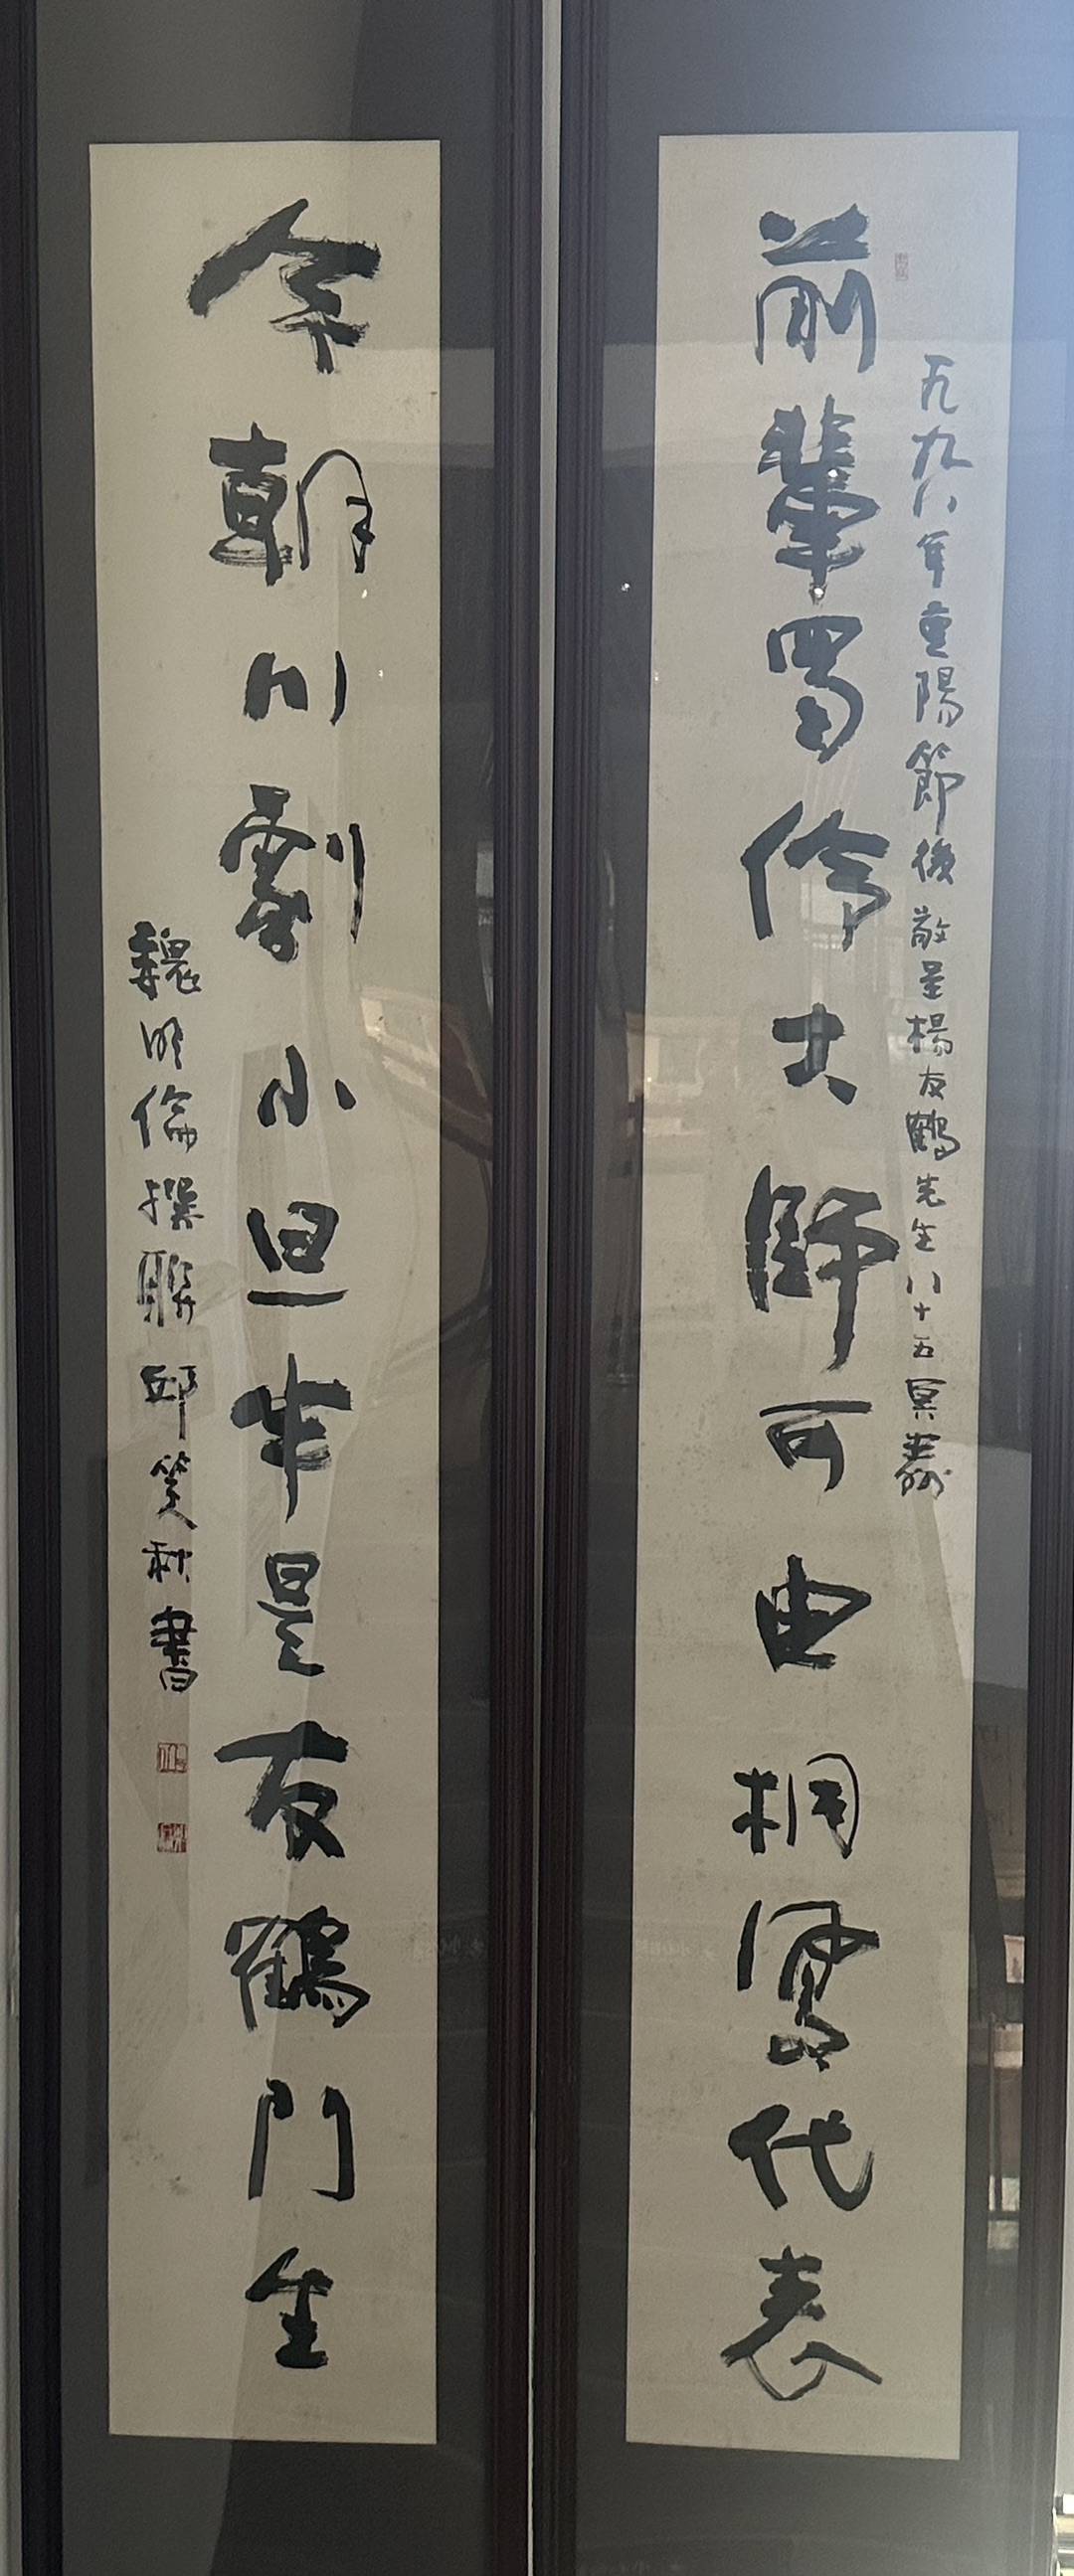 一九九八年重陽節後敬呈楊友鶴先生八十五冥壽
前輩蜀伶大師可由桐鳳代表
今朝川劇小旦半是友鶴門生
魏明倫撰聯邱笑秋書